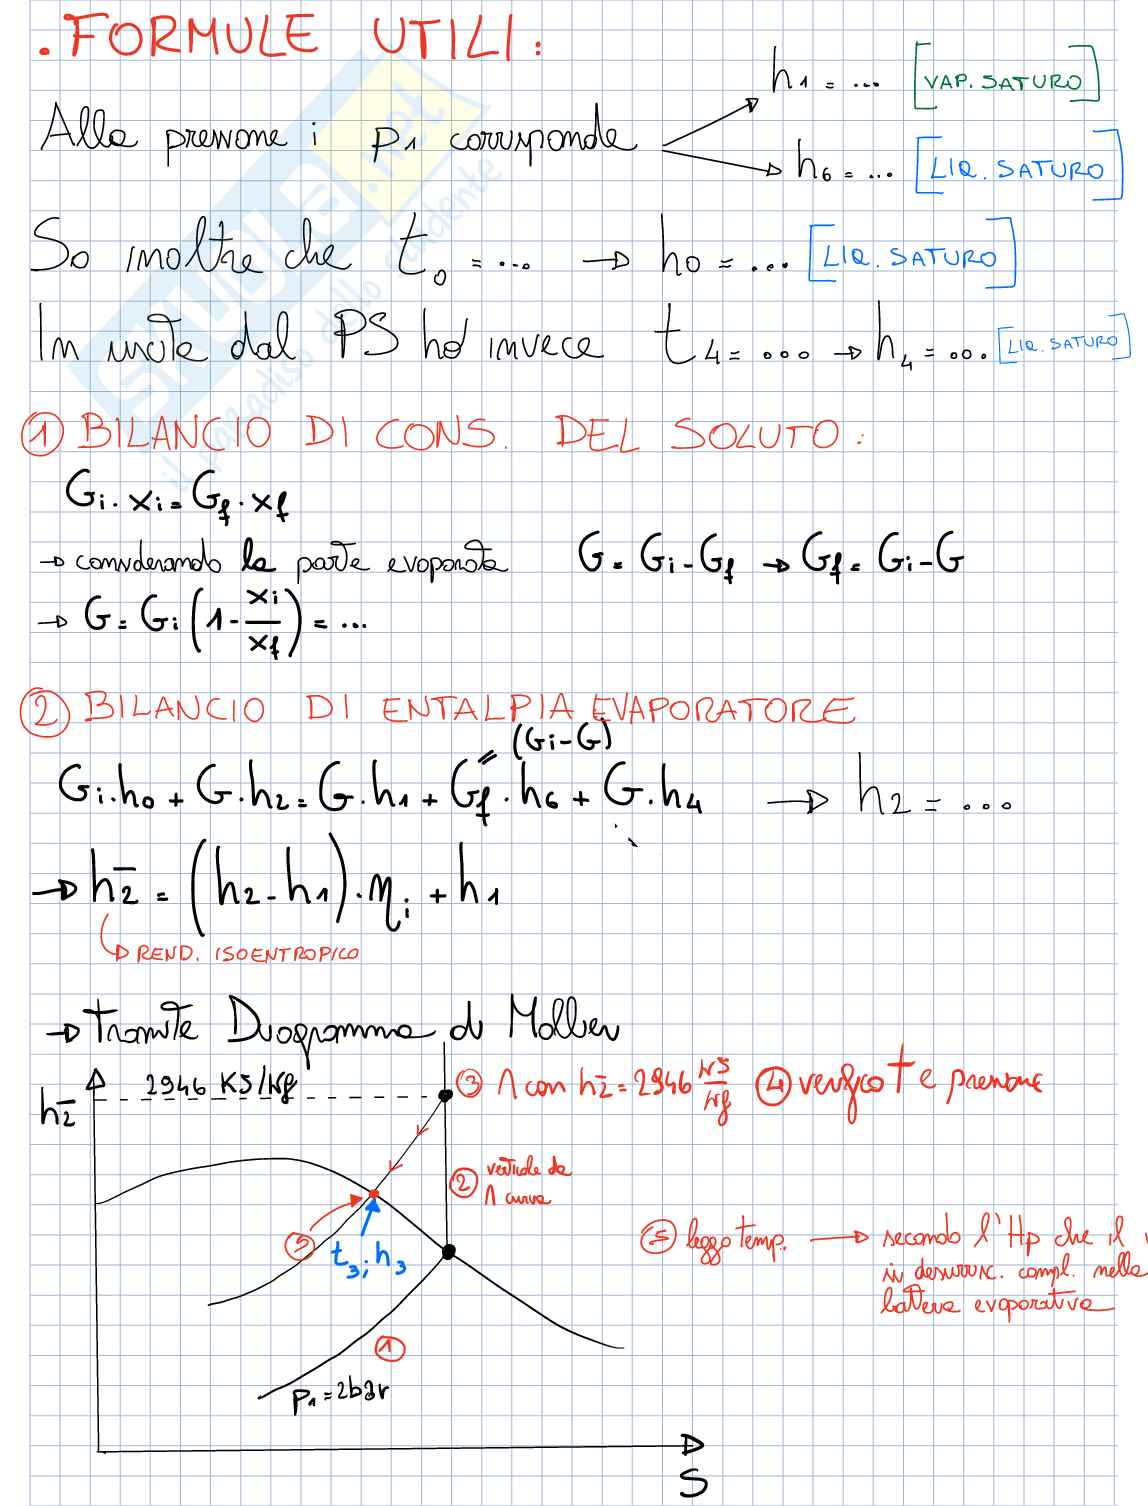 . FORMULE UTILI:
Alla pressione i p1 corrisponde
h1 = ... [VAP. SATURO]
h6 = ... [LIQ. SATURO]
So inoltre che t0 = ... → h0 = ... [LIQ. SATURO]
In uscita dal PS ho invece t4 = ... → h4 = ... [LIQ. SATURO]
SKUOLA.net
il paradiso dello studente
① BILANCIO DI CONS. DEL SOLUTO:
Gi · xi = Gf · xf
→ considerando la parte evaporata G = Gi - Gf → Gf = Gi - G
→ G = Gi (1 - xi/xf) = ...
② BILANCIO DI ENTALPIA EVAPORATORE
= (Gi - G)
Gi · h0 + G · h2 = G · h1 + Gf · h6 + G · h4 → h2 = ...
→ h2̅ = (h2 - h1) · ηi + h1
↳ REND. ISOENTROPICO
→ tramite Diagramma di Mollier
h2̅
2946 KJ/Kg
③ ∩ con h2̅ = 2946 KJ/Kg
④ verifico T e pressione
② verticale da ∩ curva
⑤
t3; h3
⑤ leggo temp. → secondo l'Hp che il
in desurrisc. compl. nella
batteria evaporativa
①
p1 = 2bar
S